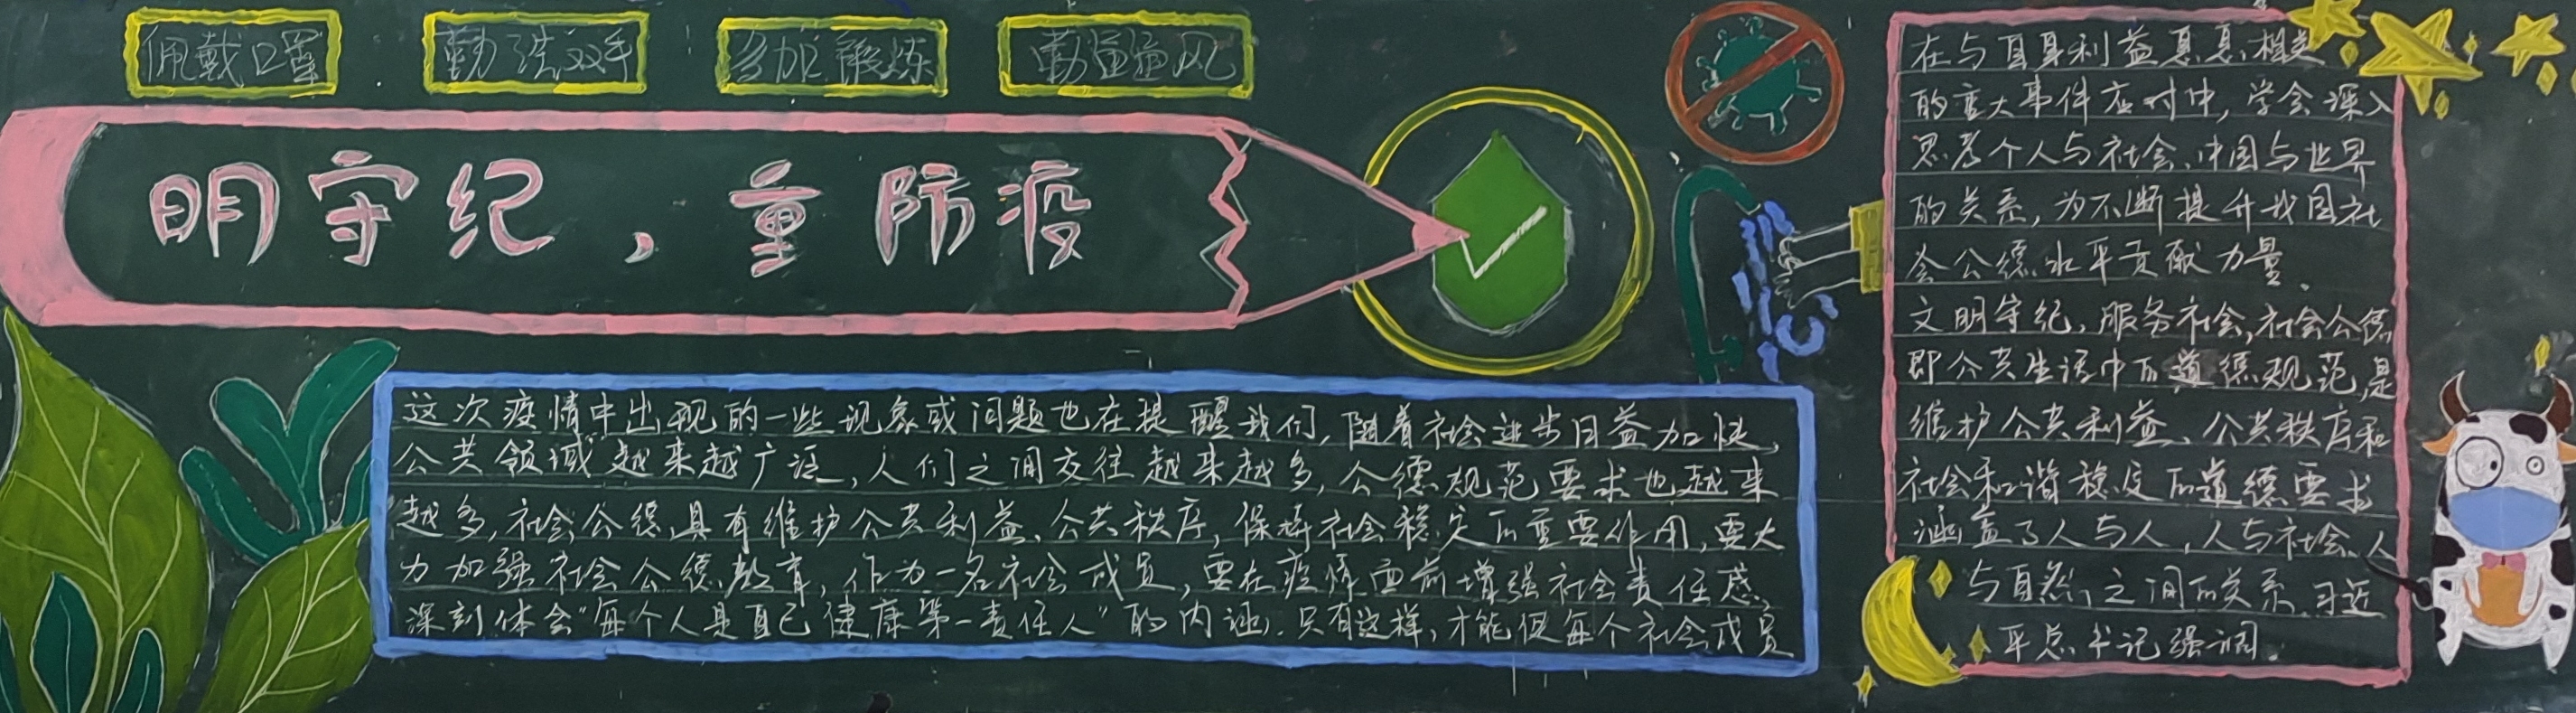 佩戴口罩
勤洗双手
多加锻炼
勤通通风
明守纪，重防疫
这次疫情中出现的一些现象或问题也在提醒我们，随着社会进步日益加快，
公共领域越来越广泛，人们之间交往越来越多，公德规范要求也越来
越多，社会公德具有维护公共利益、公共秩序，保持社会稳定的重要作用，要大
力加强社会公德教育，作为一名社会成员，要在疫情面前增强社会责任感，
深刻体会“每个人是自己健康第一责任人”的内涵。只有这样，才能使每个社会成员
在与自身利益息息相关
的重大事件应对中，学会深入
思考个人与社会、中国与世界
的关系，为不断提升我国社
会公德水平贡献力量。
文明守纪，服务社会，社会公德
即公共生活中的道德规范，是
维护公共利益、公共秩序和
社会和谐稳定的道德要求
涵盖了人与人，人与社会、人
与自然之间的关系。习近
平总书记强调。